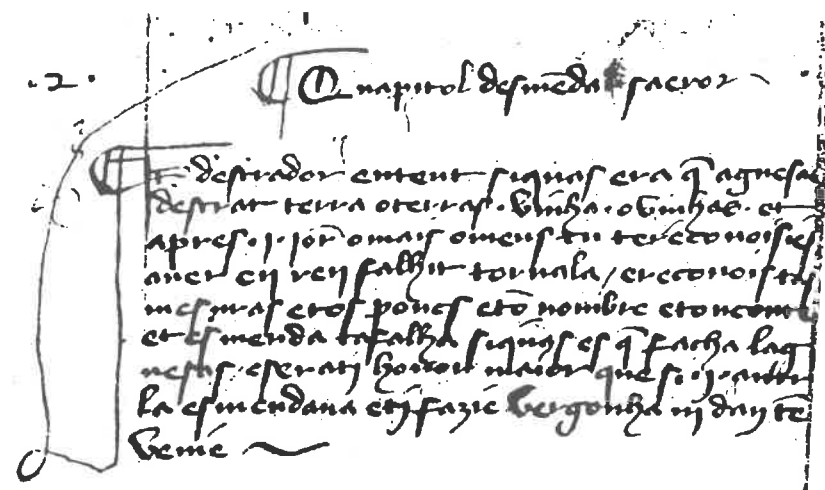 .2.
¶ Capitol desmẽda sa error
¶ Et destrador entent si quas era q̃ aguesas
destrat terra o terras . vinha . o vinhas . et
apres .i. ior̃ o mais o mens tu te reconoisses
aver en ren falhit torna la / e reconois tas
mesuras e tos poncs e tõ nombre e ton conte
et esmenda ta falha si quas es q̃ facha lag
nesas . e sera ti honor maior que si .i. autre
la esmendava e tj fazie vergonha nj dan tẽ
venie